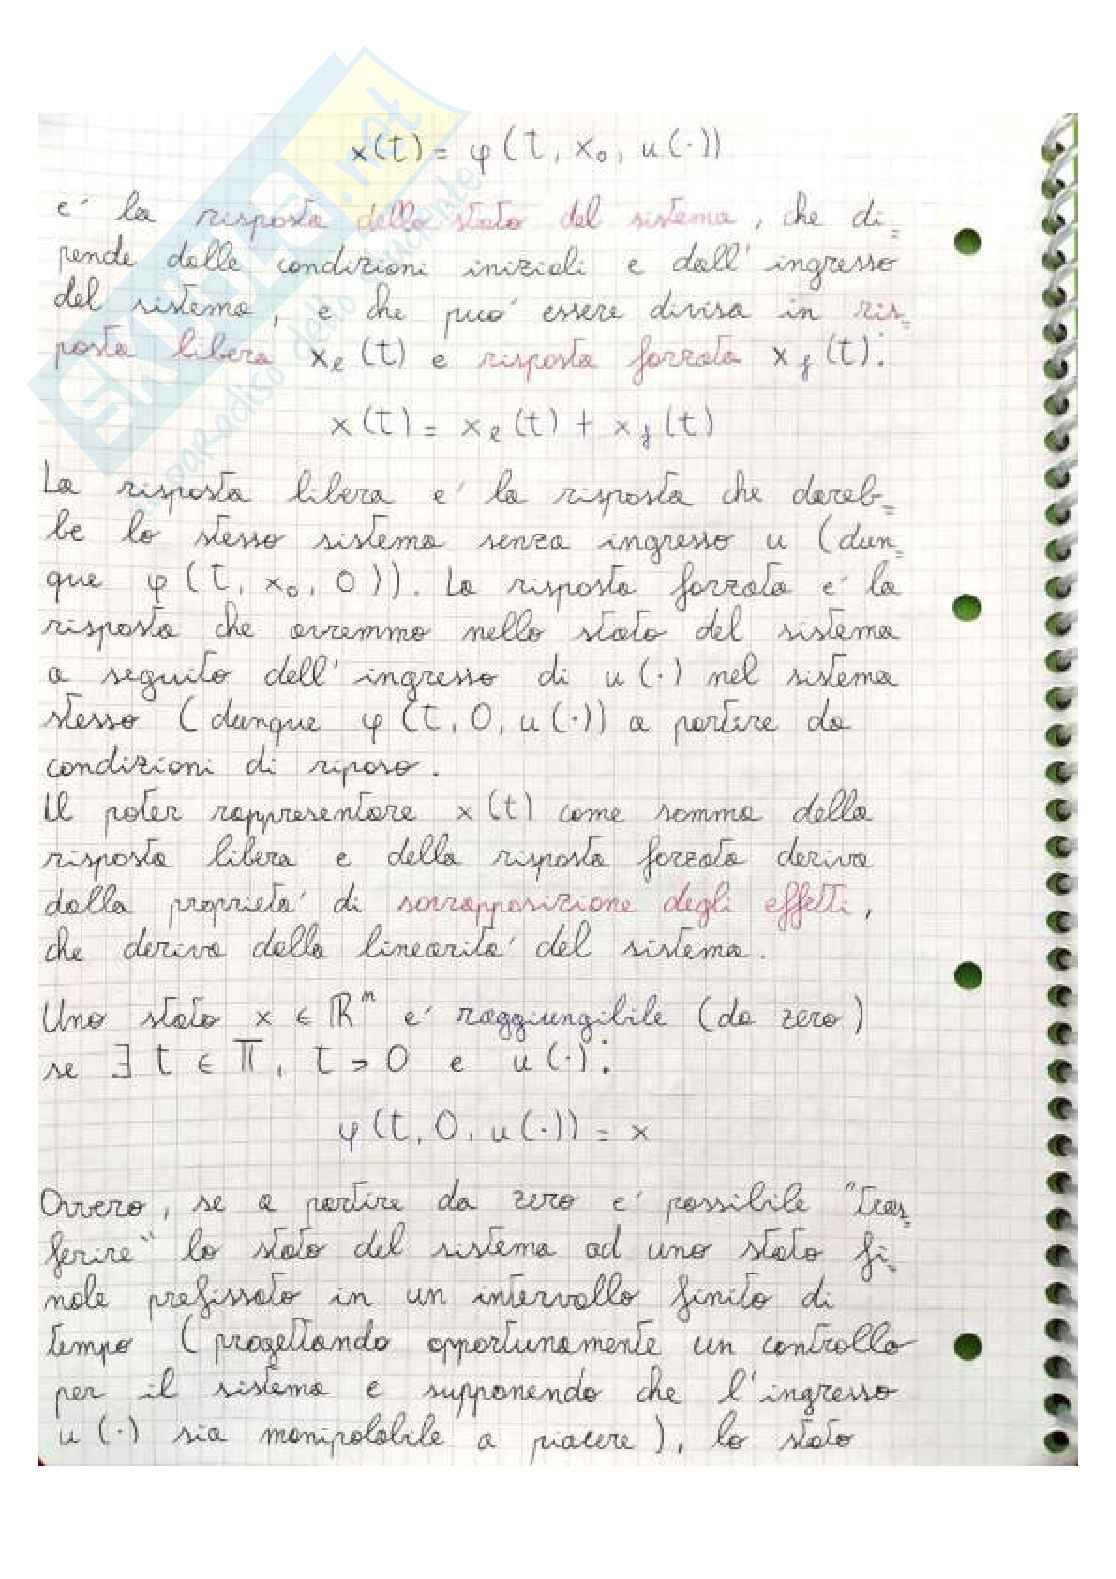 x(t) = φ(t, x₀, u(·))
e' la risposta dello stato del sistema, che di=
pende dalle condizioni iniziali e dall'ingresso
del sistema, e che puo' essere divisa in ris=
posta libera xₗ(t) e risposta forzata x_f(t):
x(t) = xₗ(t) + x_f(t)
La risposta libera e' la risposta che dareb=
be lo stesso sistema senza ingresso u (dun=
que φ(t, x₀, 0)). La risposta forzata e' la
risposta che avremmo nello stato del sistema
a seguito dell'ingresso di u(·) nel sistema
stesso (dunque φ(t, 0, u(·)) a partire da
condizioni di riposo.
Il poter rappresentare x(t) come somma della
risposta libera e della risposta forzata deriva
dalla proprieta' di sovrapposizione degli effetti,
che deriva dalla linearita' del sistema.
Uno stato x ∈ ℝⁿ e' raggiungibile (da zero)
se ∃ t ∈ 𝕋, t > 0 e u(·):
φ(t, 0, u(·)) = x
Ovvero, se a partire da zero e' possibile "tras=
ferire" lo stato del sistema ad uno stato fi=
nale prefissato in un intervallo finito di
tempo (progettando opportunamente un controllo
per il sistema e supponendo che l'ingresso
u(·) sia manipolabile a piacere), lo stato
SKUOLA.net
il paradiso dello studente